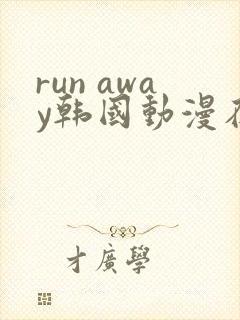 run awa
y韩國動漫
才廣學